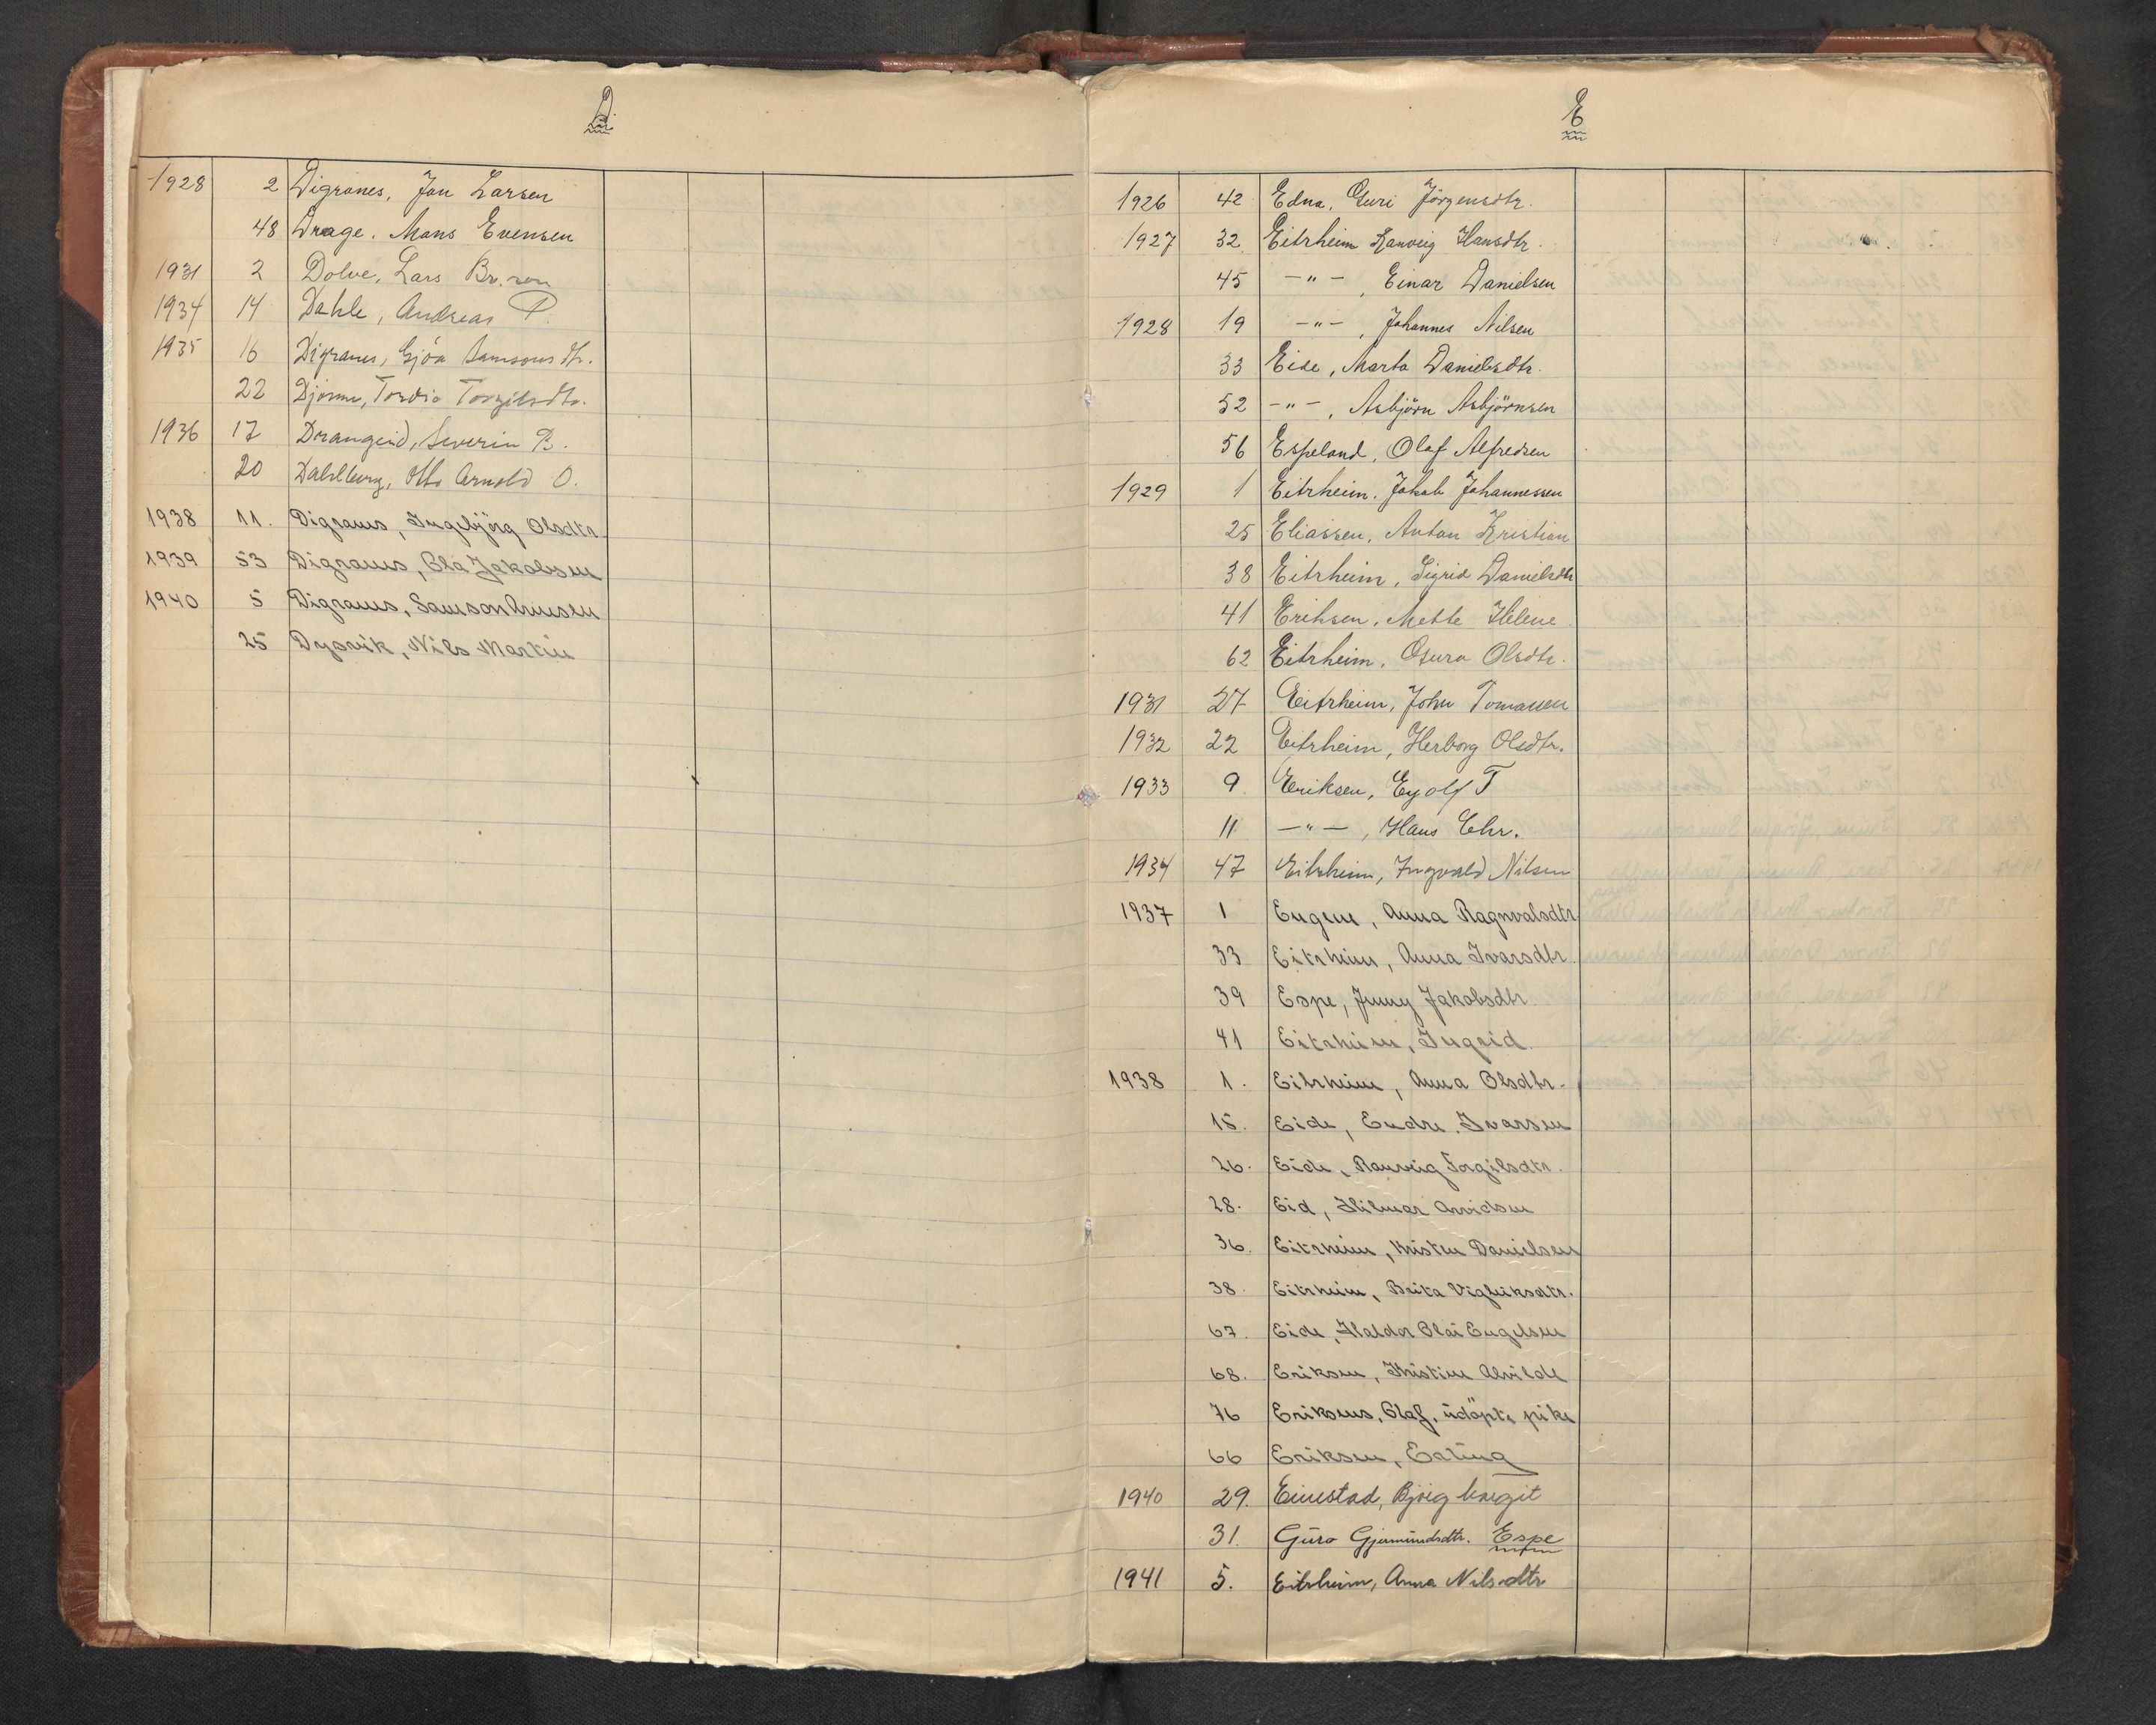 D.
1928 2 Digranes, Jon Larsen
48 Drage. Mons Evensen
1931 2 Dolve, Lars Br.son
1934 14 Dahle, Andreas P.
1935 16 Digranes, Gjöa Samsonsdtr.
22 Djönne, Tordis Torgilsdtr.
1936 17 Drangeid, Severin B.
20 Dahlberg, Otto Arnold O.
1938 11. Digranes, Ingebjörg Olsdtr
1939 53 Digranes, Ola Jakobsen
1940 5 Digranes, Samson
25 Dysvik, Nils Martin
E
1926 42 Edna, Guri Jörgensdtr.
1927 32 Eitrheim Ranveig Hansdtr.
45 -"-, Einar Danielsen
1928 19 -"-, Johannes Nilsen
33 Eide, Marta Danielsdtr.
52 -"-, Asbjörn Asbjörnsen
56 Espeland, Olaf Alfredsen
1929 1 Eitrheim. Jakob Johannessen
25 Eliassen, Anton Kristian
38 Eitrheim, Sigrid Danielsdtr
41 Eriksen, Mette Helene
62 Eitrheim, Guro Olsdtr.
1931 27 Eitrheim, John Tomassen
1932 22 Eitrheim, Herborg Olsdtr.
1933 9. Eriksen, Eyolf T
11 -"-, Hans Chr.
1934 47 Eitrheim, Ingvald Nilsen
1937 1 Eugene, Anna Ragnvalsdtr
33 Eitrheim, Anna Ivarsdtr
39 Espe, Jenny Jakobsdtr.
41 Eitrheim, Ingrid.
1938 1. Eitrheim, Anna Olsdtr.
15. Eide, Endre Ivarsen
26. Eide, Ranveig Torgilsdtr.
28. Eid, Hilmar Arvidsen
36. Eitrheim, Kristen Danielsen
38. Eitrheim, Brita Vigleiksdtr.
67. Eide, Haldor Olai Engelsen
68. Eriksen, Kristine Alvilde
76 Eriksens, Olaf, udöpte pike
66 Eriksen, Erling
1940 29. Einestad, Bjørg Margit
31. Guro Gjermundsdtr. Espe
1941 5. Eitrheim, Anna Nilsdtr